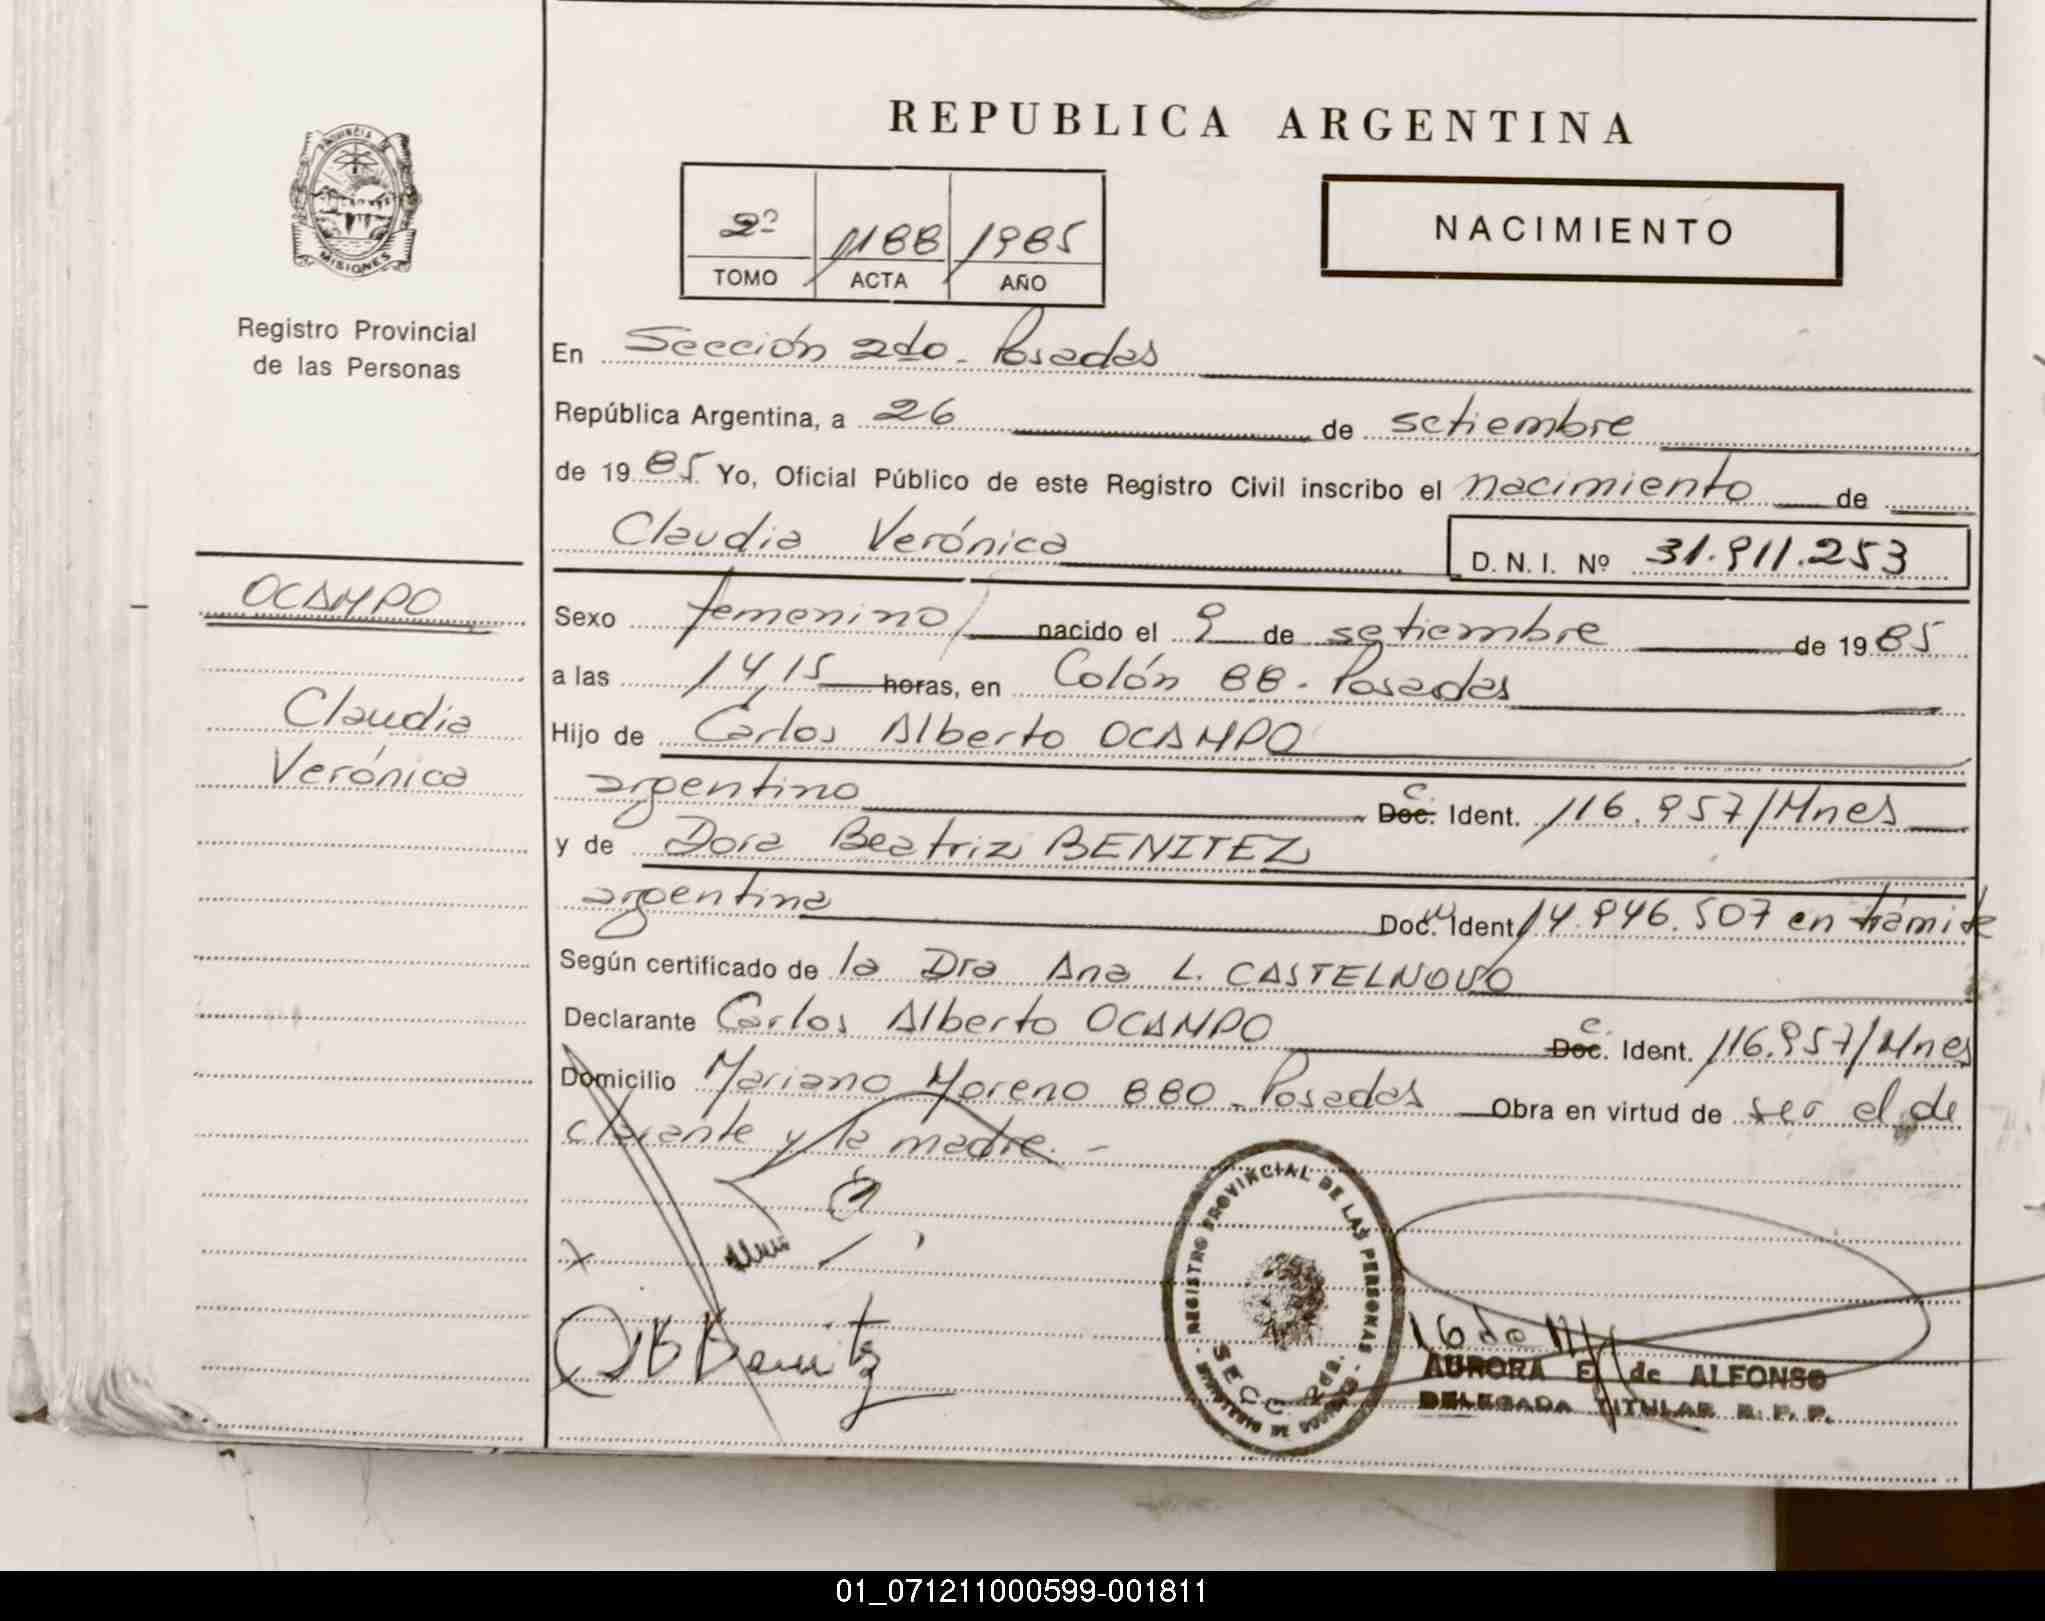 REPUBLICA ARGENTINA
PROVINCIA DE
MISIONES
Registro Provincial
de las Personas
2º 1188 1985
TOMO ACTA AÑO
NACIMIENTO
En Sección 2do. Posadas
República Argentina, a 26 de setiembre
de 1985 Yo, Oficial Público de este Registro Civil inscribo el nacimiento de
Claudia Verónica D. N. I. Nº 31.911.253
OCAMPO
Claudia
Verónica
Sexo femenino nacido el 9 de setiembre de 1985
a las 14,15 horas, en Colón 88. Posadas
Hijo de Carlos Alberto OCAMPO
argentino Doc. C. Ident. 116.957/Mnes
y de Dora Beatriz BENITEZ
argentina Doc. Ident. 14.946.507 en trámite
Según certificado de la Dra Ana L. CASTELNOVO
Declarante Carlos Alberto OCAMPO Doc. C. Ident. 116.957/Mnes
Domicilio Mariano Moreno 880. Posadas Obra en virtud de ser el de
clarante y la madre. -
DB Benitz
REGISTRO PROVINCIAL DE LAS PERSONAS
SECC. 2da.
AURORA E. de ALFONSO
DELEGADA TITULAR R. P. P.
01_071211000599-001811